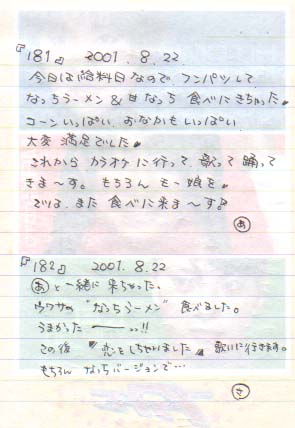 『181』 2001.8.22
今日は給料日なので フンパツして
なっちラーメン & 甘なっち 食べにきちゃった!
コーンいっぱい おなかもいっぱい
大変 満足でした!
これから カラオケに行って、歌って 踊って
きま〜す。もちろん モー娘を!
では、また 食べに来ま〜す!
あ
『182』 2001.8.22
あと一緒に 来ちゃった。
ウワサの "なっちラーメン" 食べました。
うまかった ー っ!!
この後 "恋をしちゃいました" 歌いに行きます。
もちろん なっちバージョンで…
さ